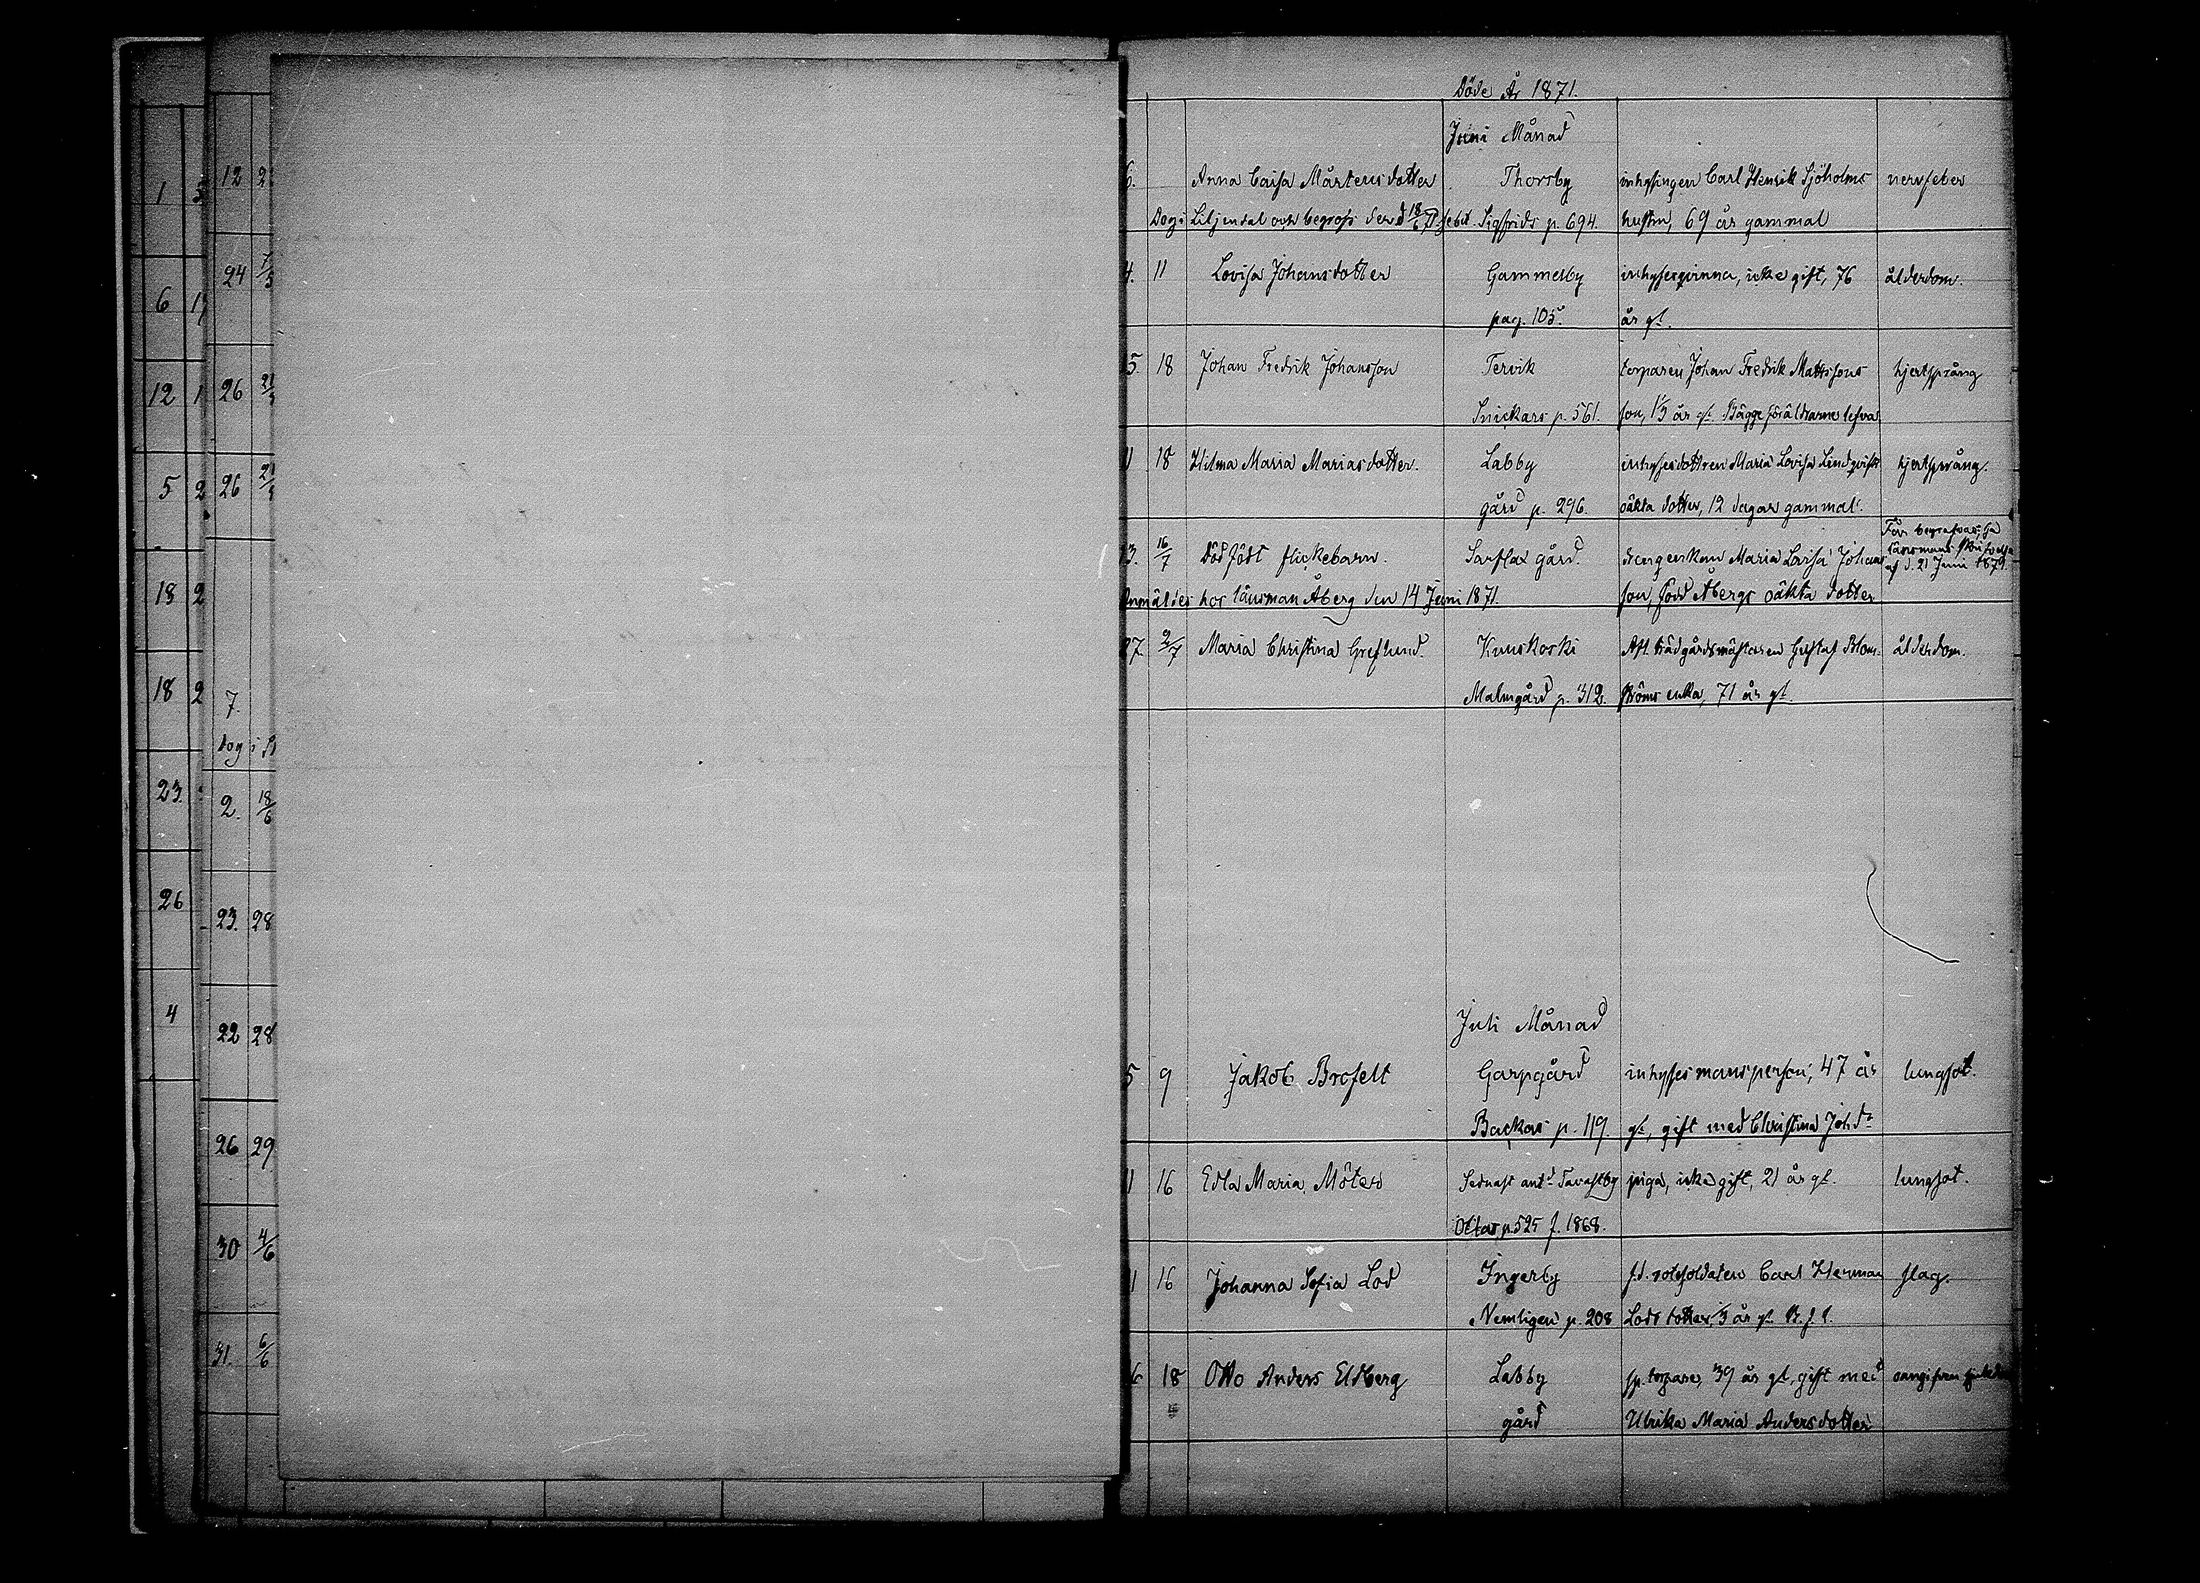 1
6
12
5
18
18
23.
26
4
12
24 7/5
26 21/
26 21/
7.
dog i
2. 18/6
23. 28
22 28
26 29
30 4/6
31. 6/6
Döde År 1871.
Juni Månad
6. Anna Caisa Mårtensdotter Thorsby inhysingen Carl Henrik Sjöholms nervfeber
Dog i Liljendal och begrofs der d 18/6 71. Sigfrids p. 694. hustru, 69 år gammal
4. 11 Lovisa Johansdotter Gammelby inhyseqvinna, icke gift, 76 ålderdom.
pag. 105. år gl.
5. 18 Johan Fredrik Johansson Tervik torparen Johan Fredrik Mattssons hjertsprång
Snickars p. 561. son, 1/3 år gl. Bägge föräldrarne lefva
11 18 Hilma Maria Mariasdotter. Labby inhysesdottren Maria Lovisa Lindqvist hjertsprång.
gård p. 296. oäkta dotter, 12 dagar gammal.
Får begrafvas, se
länsmans skrifvelse
af d. 21 Juni 1871.
13. 16/7 Dödfödt flickebarn. Sarflax gård. drengenkan Maria Lovisa Johans
Anmäldes hos länsman Åberg den 14 Juni 1871. son, född Åbergs oäkta dotter
27. 2/7 Maria Christina Greflund. Kuuskoski Afl. trädgårdsmästaren Gustaf Blom- ålderdom.
Malmgård p. 312. ströms enka, 71 år gl.
Juli Månad
5 9 Jakob Brofelt Garpgård inhyses mansperson, 47 år lungsot.
Backas p. 119. gl., gift med Christina Johdr
11 16 Edla Maria Möter Sednast antd Tavastby piga, icke gift, 21 år gl. lungsot.
p. 525 f. 1868.
11 16 Johanna Sofia Lod Ingerby f.d. rotesoldaten Carl Herman slag.
Nemligen p. 208 Lods dotter, 1/3 år gl. B. f. l.
16 18 Otto Anders Eldberg Labby sp. torpare, 39 år gl, gift med oangifven
gård Ulrika Maria Andersdotter